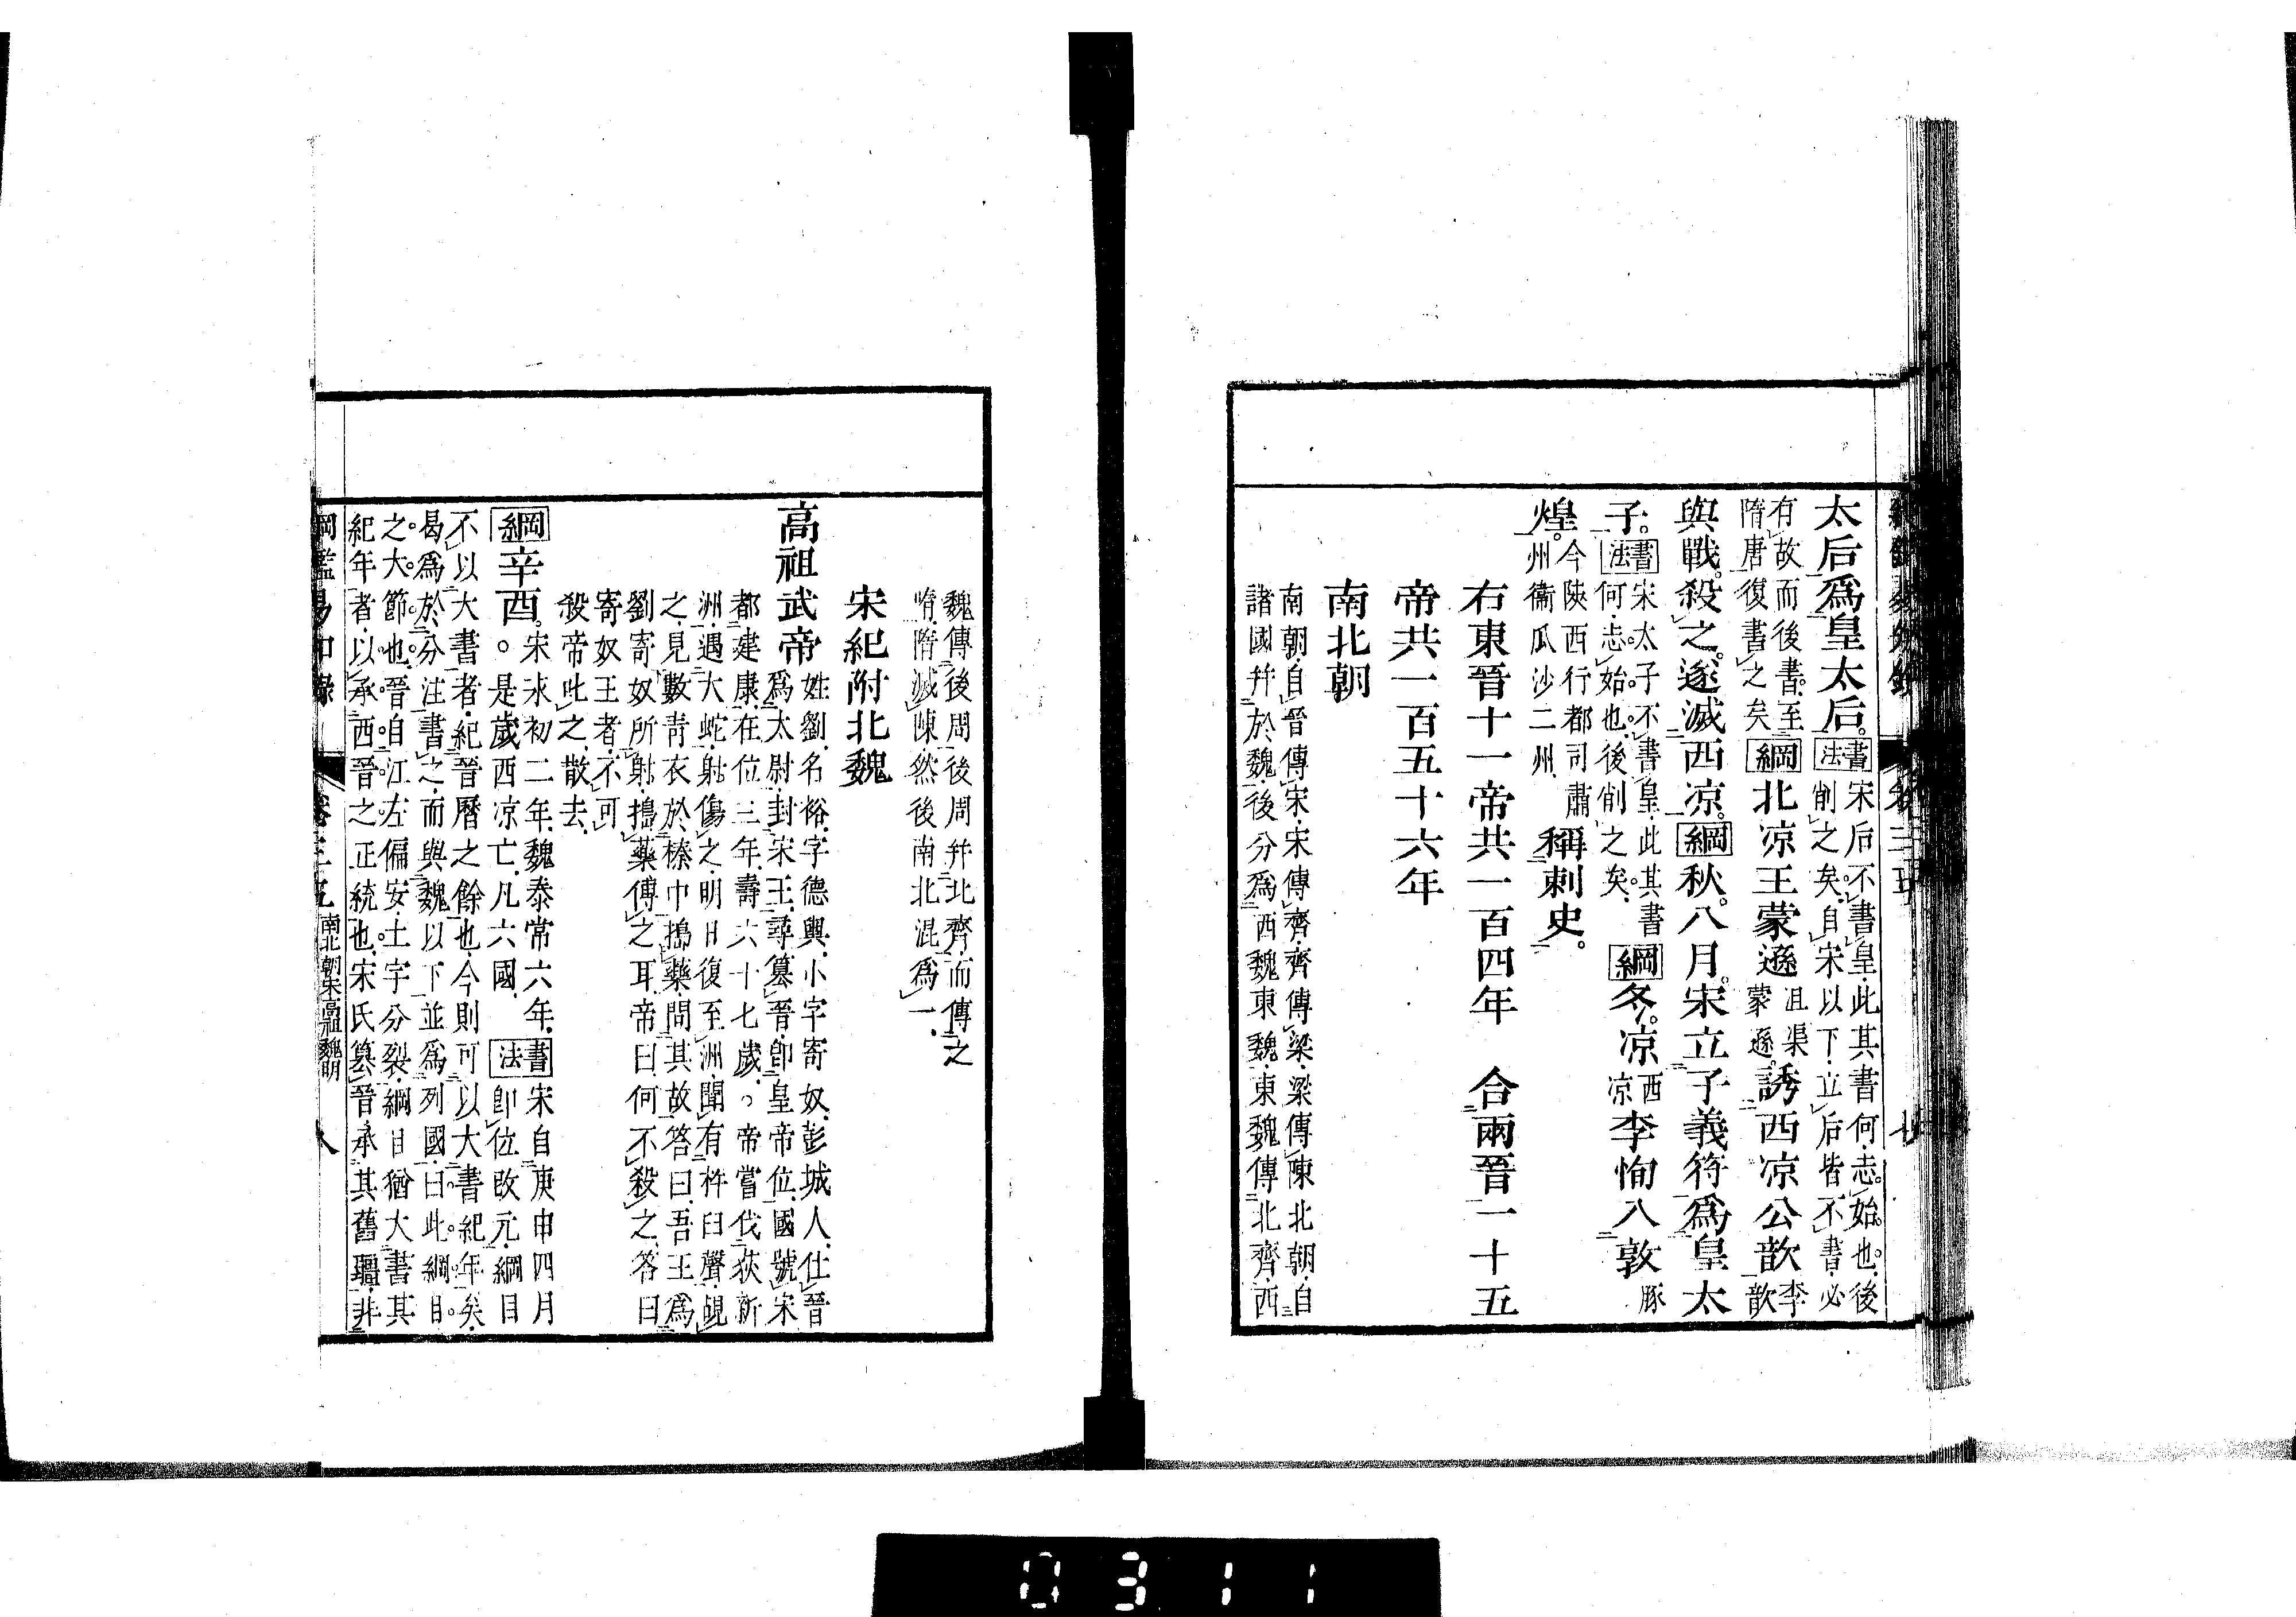 太后爲皇太后。書法宋后不書皇此其書何志始也後
削之矣自宋以下立后皆不書必
有故而後書至
隋唐復書之矣綱北凉王蒙遜沮渠
蒙遜誘西凉公歆李
歆
與戰殺之遂滅西凉。綱秋八月宋立子義符爲皇太
子。書法宋太子不書皇此其書
何志始也後削之矣綱冬凉西
凉李恂入敦豚
煌。今陝西行都司肅
州衞瓜沙二州稱刺史。
右東晉十一帝共一百四年 合兩晉一十五
帝共一百五十六年
南北朝
南朝自晉傳宋宋傳齊齊傳梁梁傳陳北朝自
諸國幷於魏後分爲西魏東魏東魏傳北齊西
魏傳後周後周幷北齊而傳之
隋隋滅陳然後南北混爲一
宋紀附北魏
高祖武帝姓劉名裕字德輿小字寄奴彭城人仕晉
爲太尉封宋王尋簒晉卽皇帝位國號宋
都建康在位三年壽六十七歲。帝嘗伐荻新
洲遇大蛇射傷之明日復至洲聞有杵臼聲覘
之見數靑衣於榛中搗藥問其故答曰吾王爲
劉寄奴所射搗藥傅之耳帝曰何不殺之答曰
寄奴王者不可
殺帝叱之散去
綱辛酉。宋永初二年魏泰常六年
。是歲西凉亡凡六國書法宋自庚申四月
卽位改元綱目
不以大書者紀晉曆之餘也今則可以大書紀年矣
曷爲於分注書之而與魏以下並爲列國曰此綱目
之大節也晉自江左偏安土宇分裂綱目猶大書其
紀年者以承西晉之正統也宋氏簒晉承其舊疆非
綱鑑易知錄
卷三五
南北朝宋高祖魏明
八